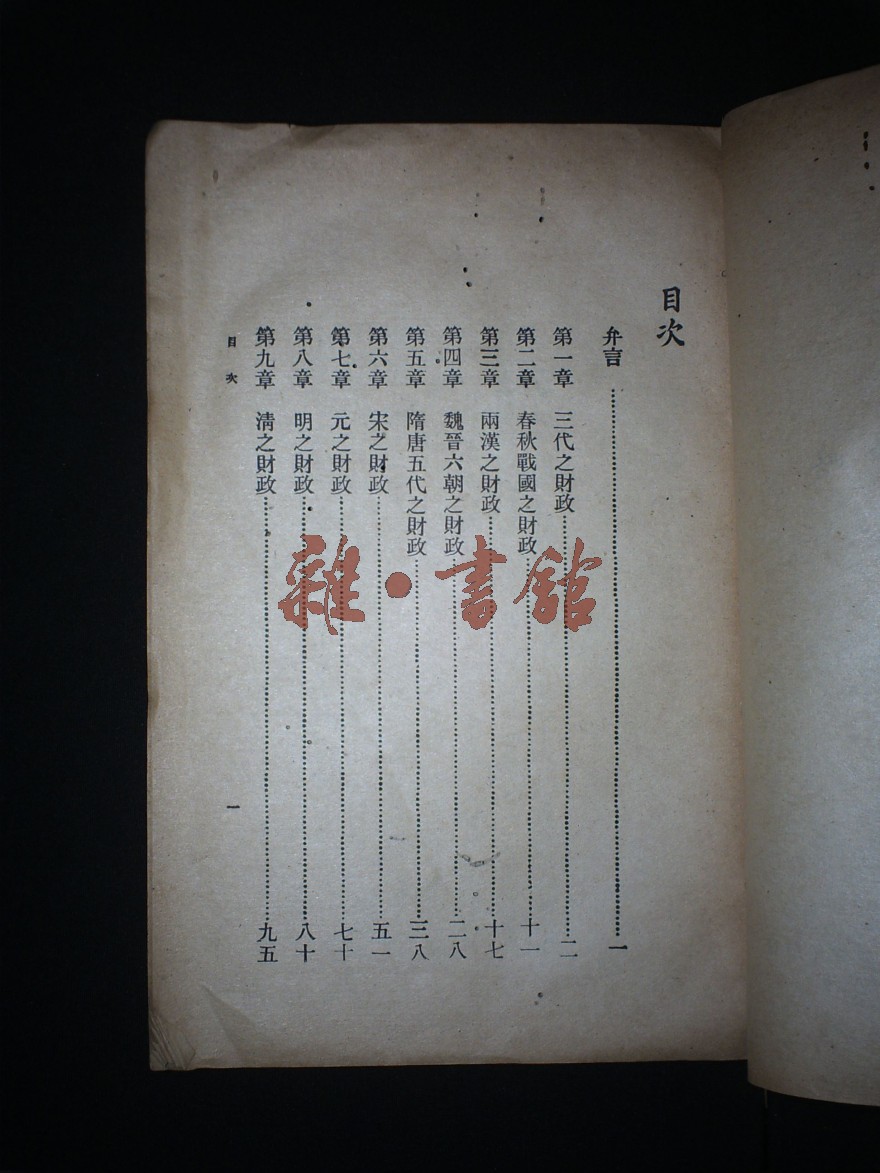 目次
弁言 一
第一章 三代之財政 二
第二章 春秋戰國之財政 十一
第三章 兩漢之財政 十七
第四章 魏晉六朝之財政 二八
第五章 隋唐五代之財政 三八
第六章 宋之財政 五一
第七章 元之財政 七十
第八章 明之財政 八十
第九章 淸之財政 九五
目次 一
雜·書館